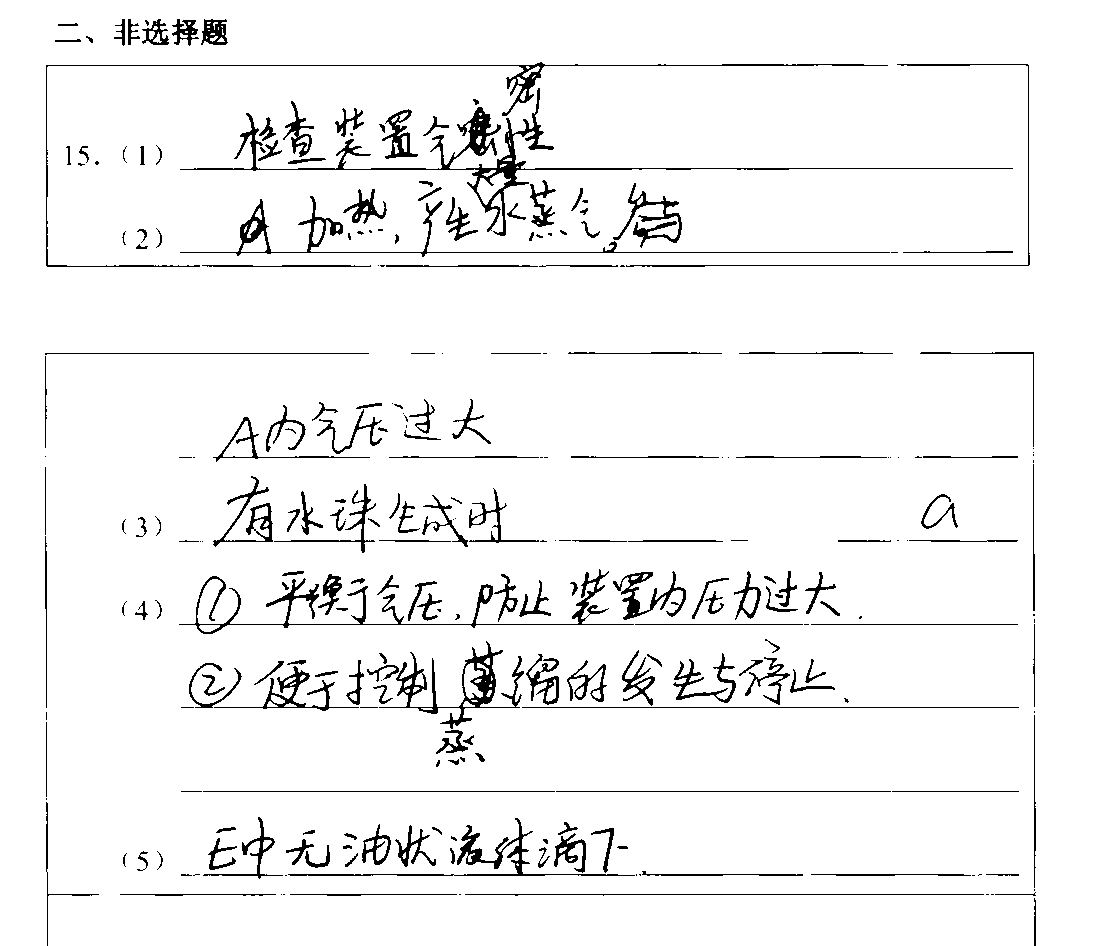 二、非选择题
15.（1） 检查装置气密性
（2） A 加热，产生大量水蒸气。
A内气压过大
（3） 有水珠生成时 a
（4） ① 平衡于气压，防止装置内压力过大.
② 便于控制蒸馏的发生与停止.
（5） E中无油状液体滴下.